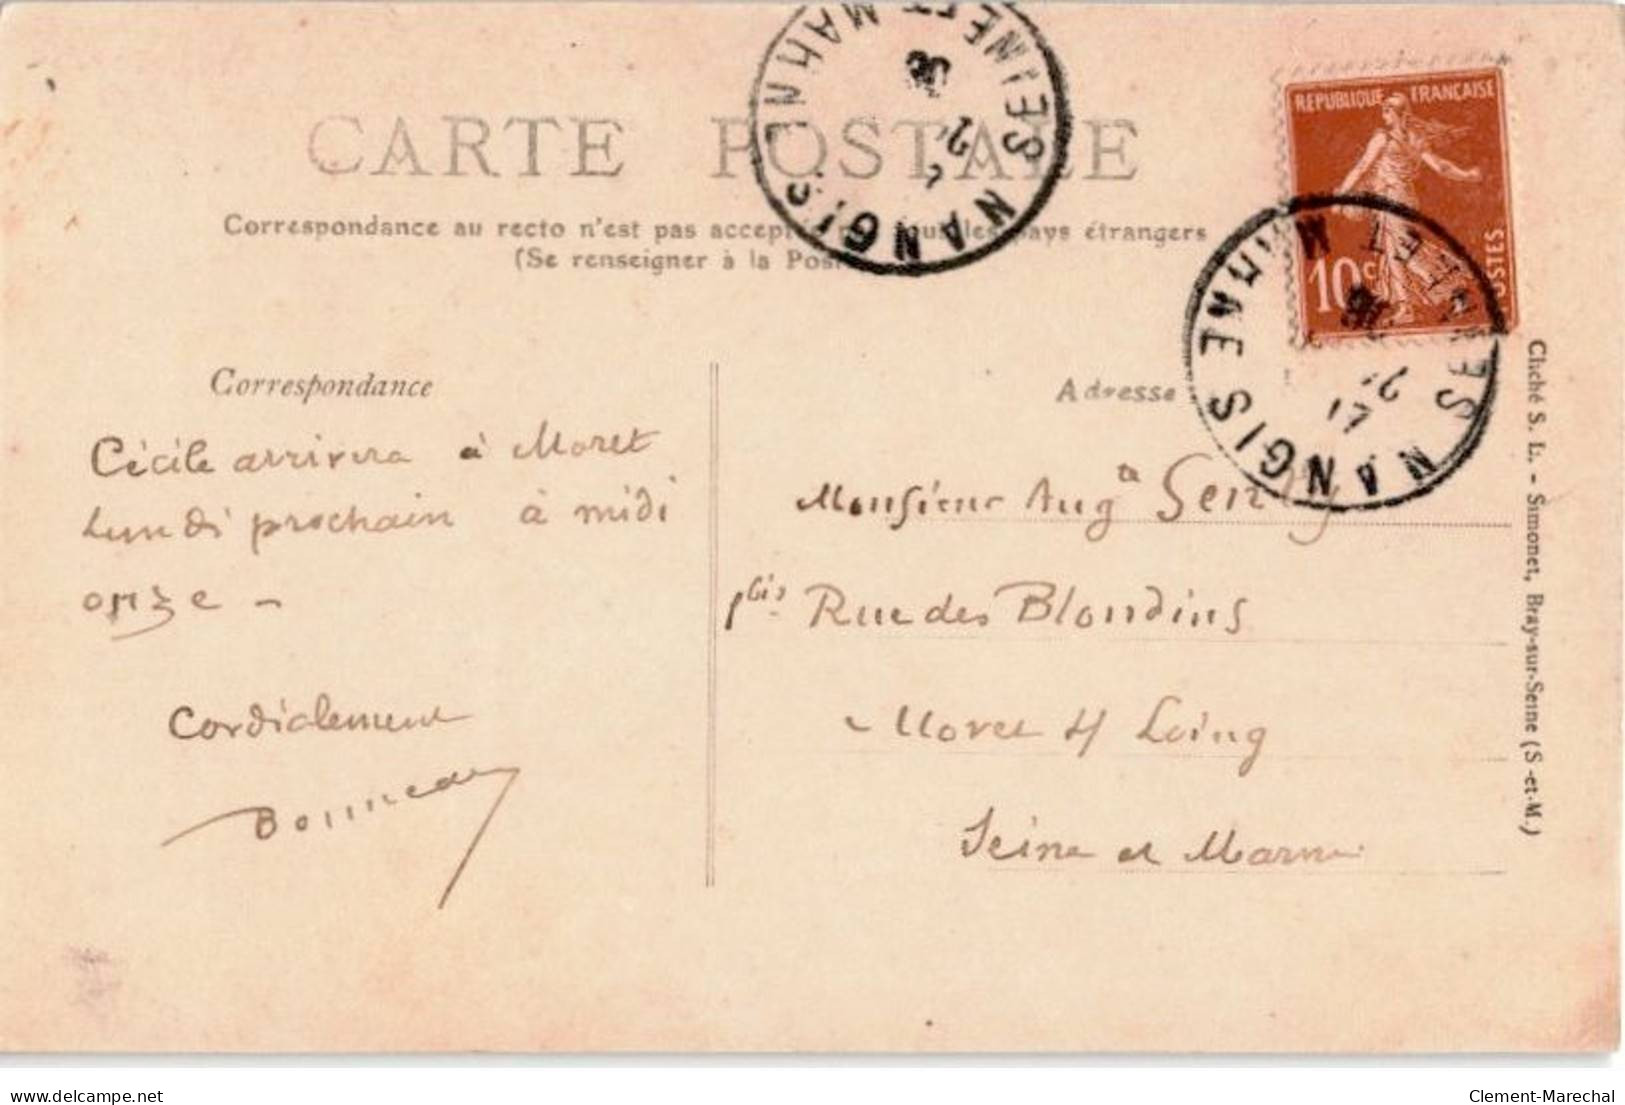 CARTE POSTALE
Correspondance au recto n'est pas acceptée par tous les pays étrangers
(Se renseigner à la Poste)
SEINE ET MARNE
NANGIS
REPUBLIQUE FRANÇAISE
10c
POSTES
SEINE ET MARNE
NANGIS
Correspondance
Cécile arrivera à Moret
Lundi prochain à midi
onze -
Cordialement
Bonneau
Adresse
Monsieur Augte
1bis Rue des Blondins
Moret s/ Loing
Seine et Marne
Cliché S. L. - Simonet, Bray-sur-Seine (S-et-M.)
delcampe.net
Clement-Marechal